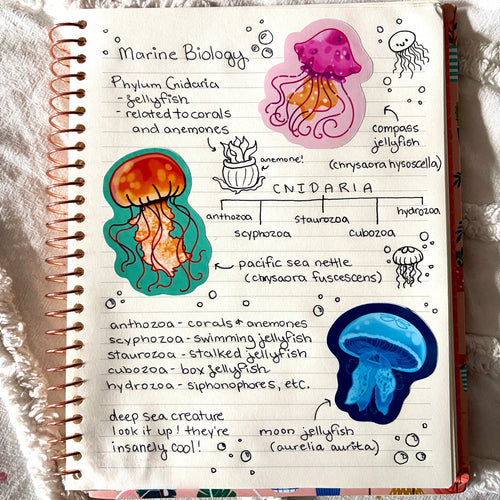 Marine Biology
Phylum Cnidaria
- jellyfish
- related to corals
and anemones
anemone!
compass
jellyfish
(chrysaora hysoscella)
CNIDARIA
anthozoa
scyphozoa
staurozoa
cubozoa
hydrozoa
pacific sea nettle
(chrysaora fuscescens)
anthozoa - corals & anemones
scyphozoa - swimming jellyfish
staurozoa - stalked jellyfish
cubozoa - box jellyfish
hydrozoa - siphonophores, etc.
deep sea creature
look it up! they're
insanely cool!
moon jellyfish
(aurelia aurita)